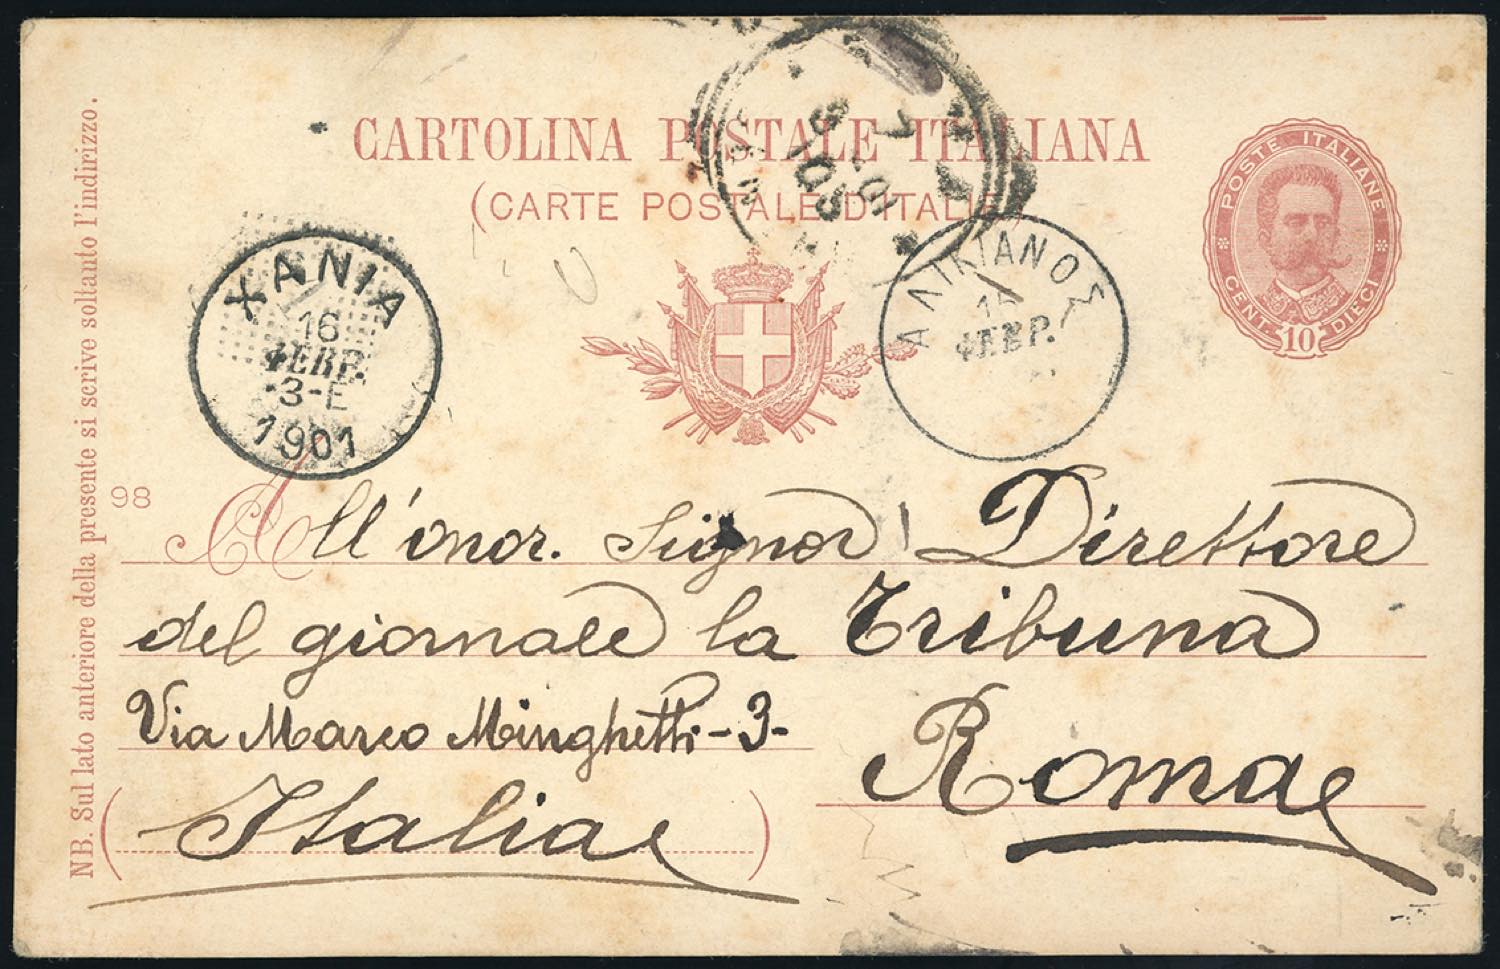 CARTOLINA POSTALE ITALIANA
(CARTE POSTALE D'ITALIE)
POSTE ITALIANE
CENT. 10 DIECI
ΧΑΝΙΑ
16
ΦΕΒΡ.
3-Ε
1901
ΑΛΙΚΙΑΝΟΣ
ΦΕΒΡ.
98
All'onor. Signor Direttore
del giornale la Tribuna
Via Marco Minghetti - 3 -
Roma
(Italia)
NB. Sul lato anteriore della presente si scrive soltanto l'indirizzo.